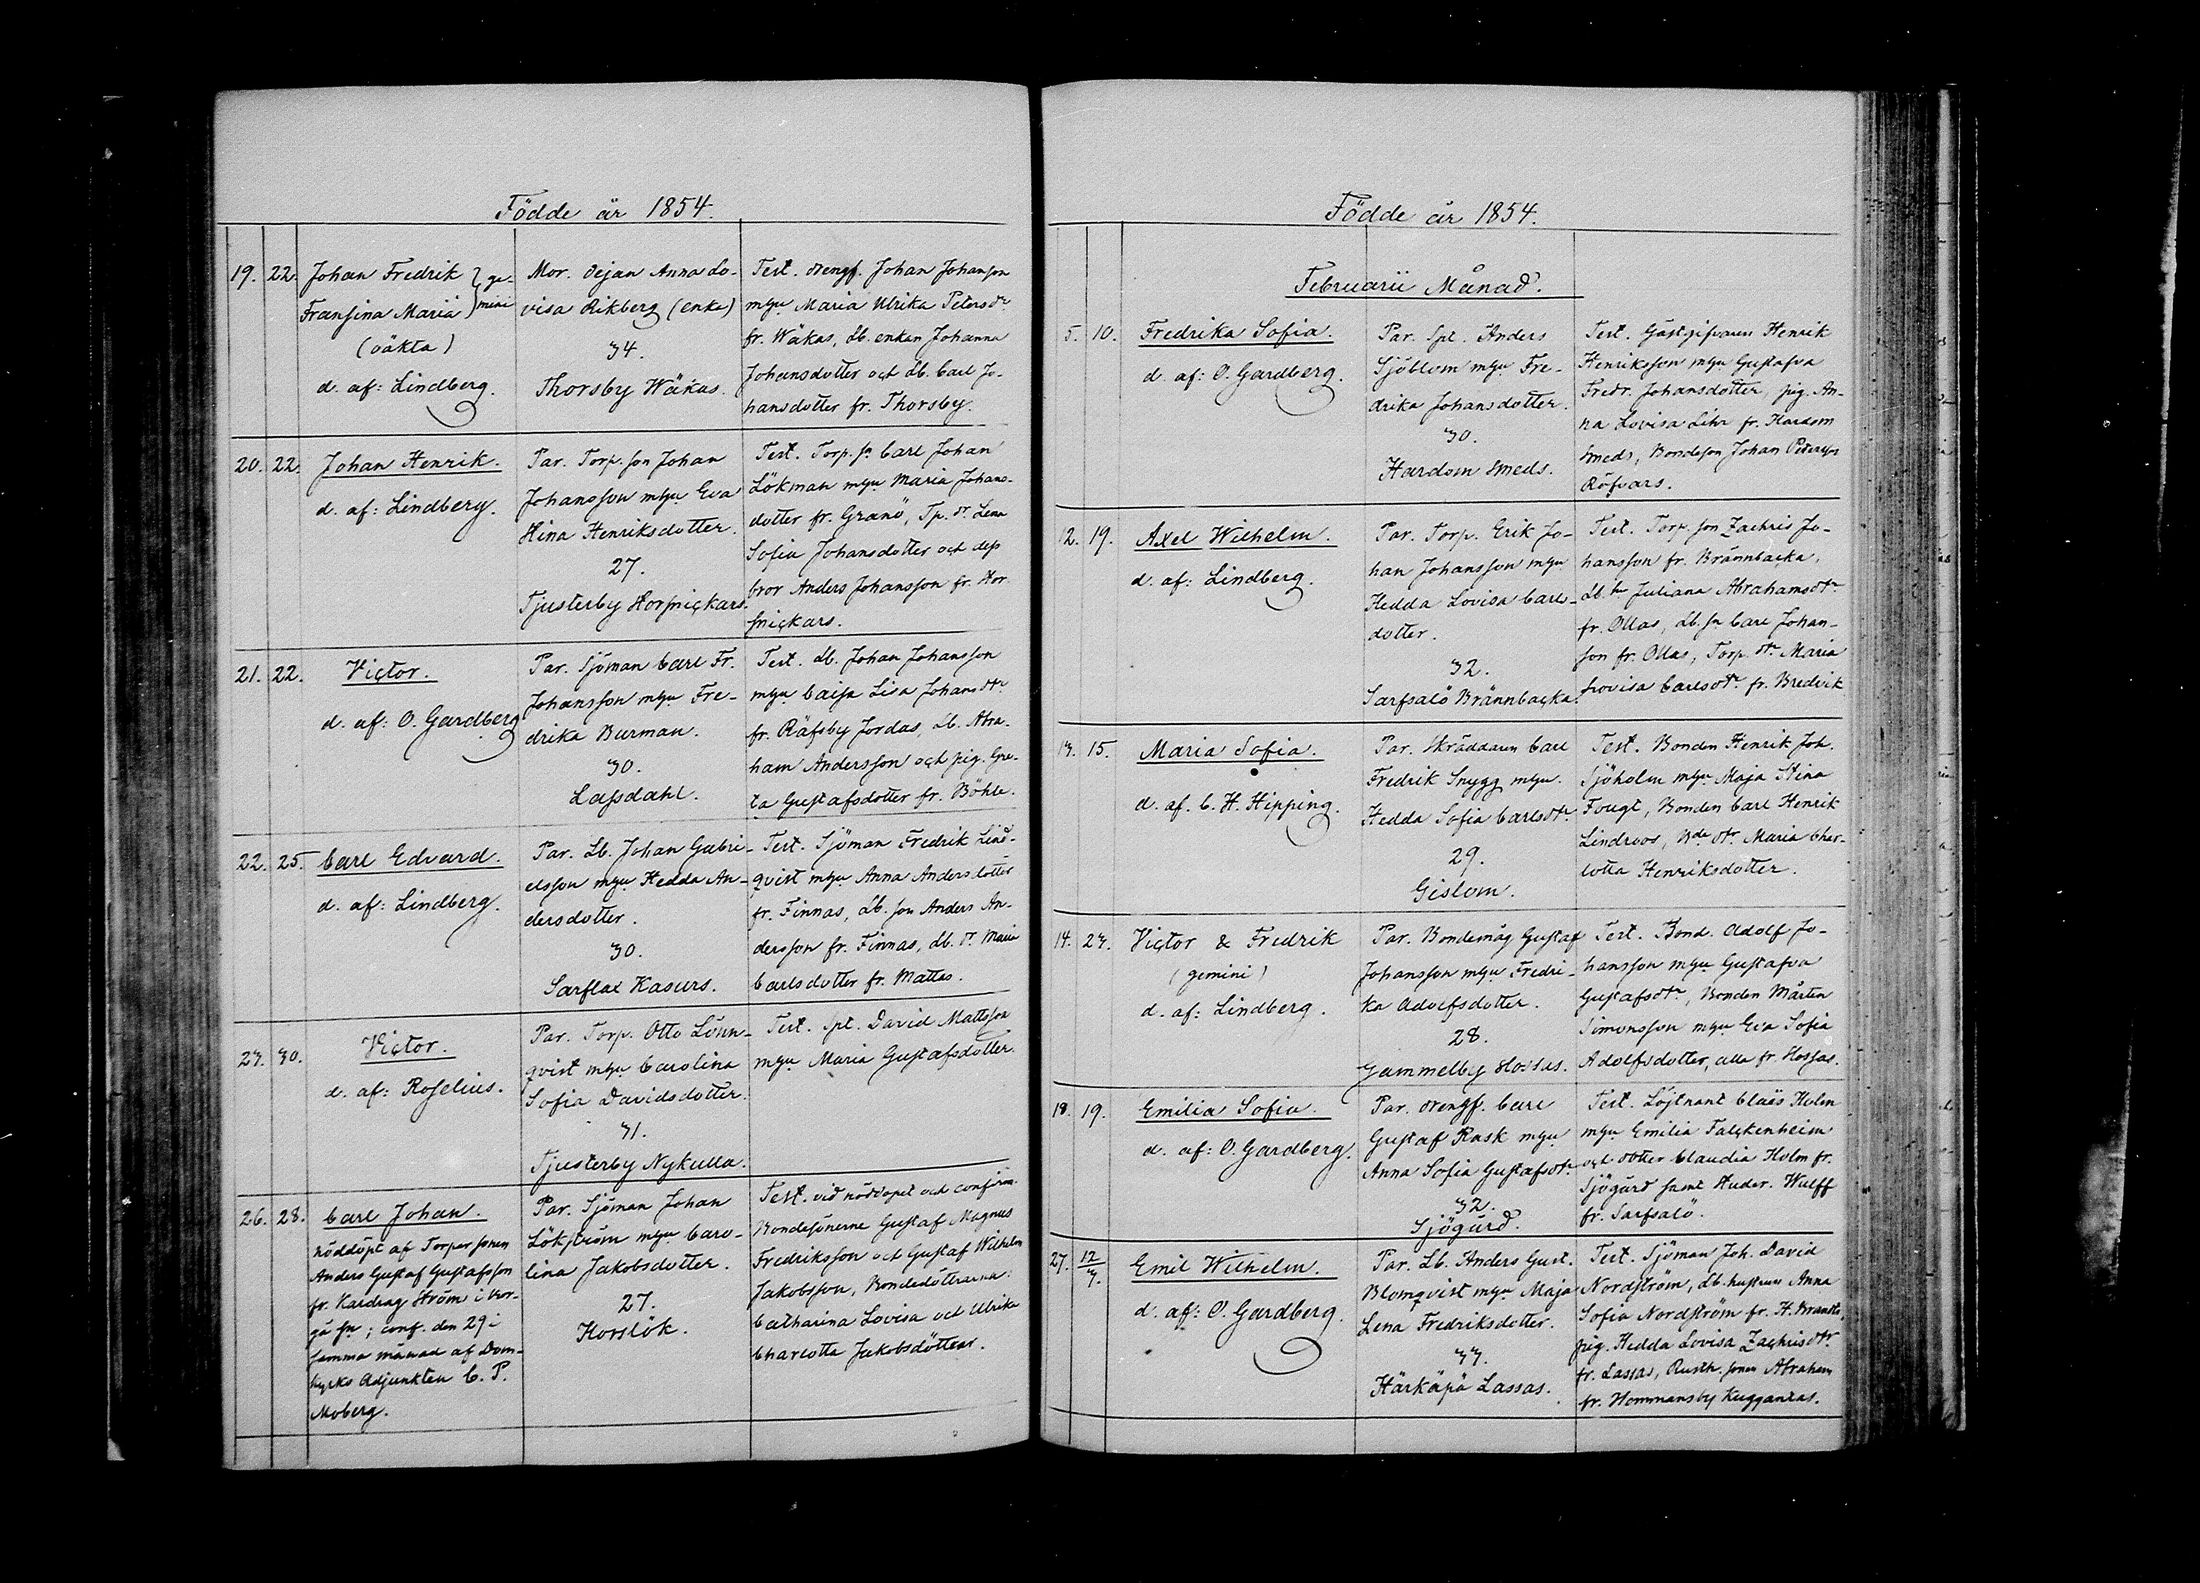 Födde år 1854.
19. 22. Johan Fredrik } ge-
Fransina Maria } mini
(oäkta)
d. af: Lindberg.
Mor. Pejan Anna Lo-
visa Rikberg (enka)
34.
Thorsby Wäkas.
Test. drengf. Johan Johanson
m:hu Maria Ulrika Petersdr
fr. Wäkas, Lb. enkan Johanna
Johansdotter och Lb. Carl Jo-
hansdotter fr. Thorsby.
20. 22. Johan Henrik.
d. af: Lindberg.
Par. Torp. son Johan
Johansson m:hu Eva
Stina Henriksdotter.
27.
Tjusterby Horsnickars.
Test. Torp. sn Carl Johan
Lökman m:hu Maria Johans-
dotter fr. Granö, Tp. dr Lena
Sofia Johansdotter och dess
bror Anders Johansson fr. Hor-
snickars.
21. 22. Victor.
d. af: O. Gardberg
Par. Sjöman Carl Fr.
Johansson m:hu Fre-
drika Burman.
30.
Lassdahl.
Test. Lb. Johan Johansson
m:hu Caisa Lisa Johansdtr
fr. Räfsby Jordas, Lb. Abra-
ham Andersson och pig. Gre-
ta Gustafsdotter fr. Böhle.
22. 25. Carl Edvard.
d. af: Lindberg.
Par. Lb. Johan Gabri-
elsson m:hu Hedda An-
dersdotter.
30.
Sarflax Kasurs.
Test. Sjöman Fredrik Lind-
qvist m:hu Anna Andersdotter
fr. Finnas, Lb. son Anders An-
dersson fr. Finnas, Lb. dr Maria
Carlsdotter fr. Mattas.
23. 30. Victor.
d. af: Roselius.
Par. Torp. Otto Lönn-
qvist m:hu Carolina
Sofia Davidsdotter.
31.
Tjusterby Nykulla.
Test. Spt. David Mattsson
m:hu Maria Gustafsdotter.
26. 28. Carl Johan.
nöddöpt af Torparsonen
Anders Gustaf Gustafsson
fr. Kardrag Ström i Bor-
gå sn; conf. den 29 i
samma månad af Dom-
kyrko Adjunkten C. P.
Moberg.
Par. Sjöman Johan
Lökström m:hu Caro-
lina Jakobsdotter.
27.
Horslök.
Test. vid nöddopet och confirm.
Bondesönerne Gustaf Magnus
Fredriksson och Gustaf Wilhelm
Jakobsson, Bondedöttrarna
Catharina Lovisa och Ulrika
Charlotta Jakobsdöttrar.
Födde år 1854.
Februarii Månad.
5. 10. Fredrika Sofia.
d. af: O. Gardberg.
Par. Spt. Anders
Sjöblom m:hu Fre-
drika Johansdotter.
30.
Hardom Smeds.
Test. Gästgifvaren Henrik
Henriksson m:hu Gustafva
Fredr. Johansdotter, pig. An-
na Lovisa Lihr fr. Hardom
Smeds, Bondeson Johan Petersson
Röfvars.
12. 19. Axel Wilhelm.
d. af: Lindberg.
Par. Torp. Erik Jo-
han Johansson m:hu
Hedda Lovisa Carls-
dotter.
32.
Sarfsalö Brännbacka.
Test. Torp. son Zachris Jo-
hansson fr. Brännbacka,
Lb. hu Juliana Abrahamsdtr
fr. Ollas, Lb. sn Carl Johan-
son fr. Ollas, Torp. dtr Maria
Lovisa Carlsdtr fr. Bredvik
13. 15. Maria Sofia.
d. af. C. H. Hipping.
Par. Skräddaren Carl
Fredrik Snygg m:hu
Hedda Sofia Carlsdtr
29.
Gislom.
Test. Bonden Henrik Joh.
Sjöholm m:hu Maja Stina
Fougt, Bonden Carl Henrik
Lindroos, Bde dtr Maria Char-
lotta Henriksdotter.
14. 23. Victor & Fredrik
(gemini)
d. af: Lindberg.
Par. Bondemåg Gustaf
Johansson m:hu Fredri-
ka Adolfsdotter.
28.
Gammelby Hossas.
Test. Bond. Adolf Jo-
hansson m:hu Gustafva
Gustafsdtr, Bonden Mårten
Simonsson m:hu Eva Sofia
Adolfsdotter, alla fr. Hossas.
18. 19. Emilia Sofia.
d. af: O. Gardberg.
Par. drengf. Carl
Gustaf Rask m:hu
Anna Sofia Gustafsdtr
32.
Sjögård.
Test. Löjtnant Claës Holm
m:hu Emilia Falckenheim
och dotter Claudia Holm fr.
Sjögård samt Studer. Wulff
fr. Sarfsalö.
27. 12/3. Emil Wilhelm.
d. af: O. Gardberg.
Par. Lb. Anders Gust.
Blomqvist m:hu Maja
Lena Fredriksdotter.
33.
Härkäpä Lassas.
Test. Sjöman Joh. David
Nordström, Lb. hustrun Anna
Sofia Nordström fr. H. Brandts,
pig. Hedda Lovisa Zachrisdtr
fr. Lassas, Rusth. sonen Abraham
fr. Hommansby Kuggantas.